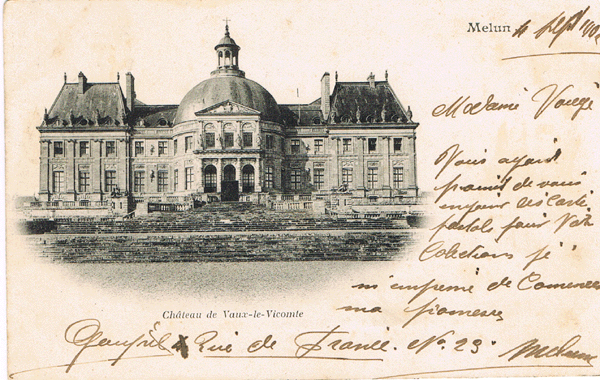 Melun 4 Sept 190
Madame
Vous ayant
promis de vous
envoyer des carte
postals pour Votr
Colections je
m'empresse de Comencer
ma promesse
Château de Vaux-le-Vicomte
Rue de France. No. 23. Melun